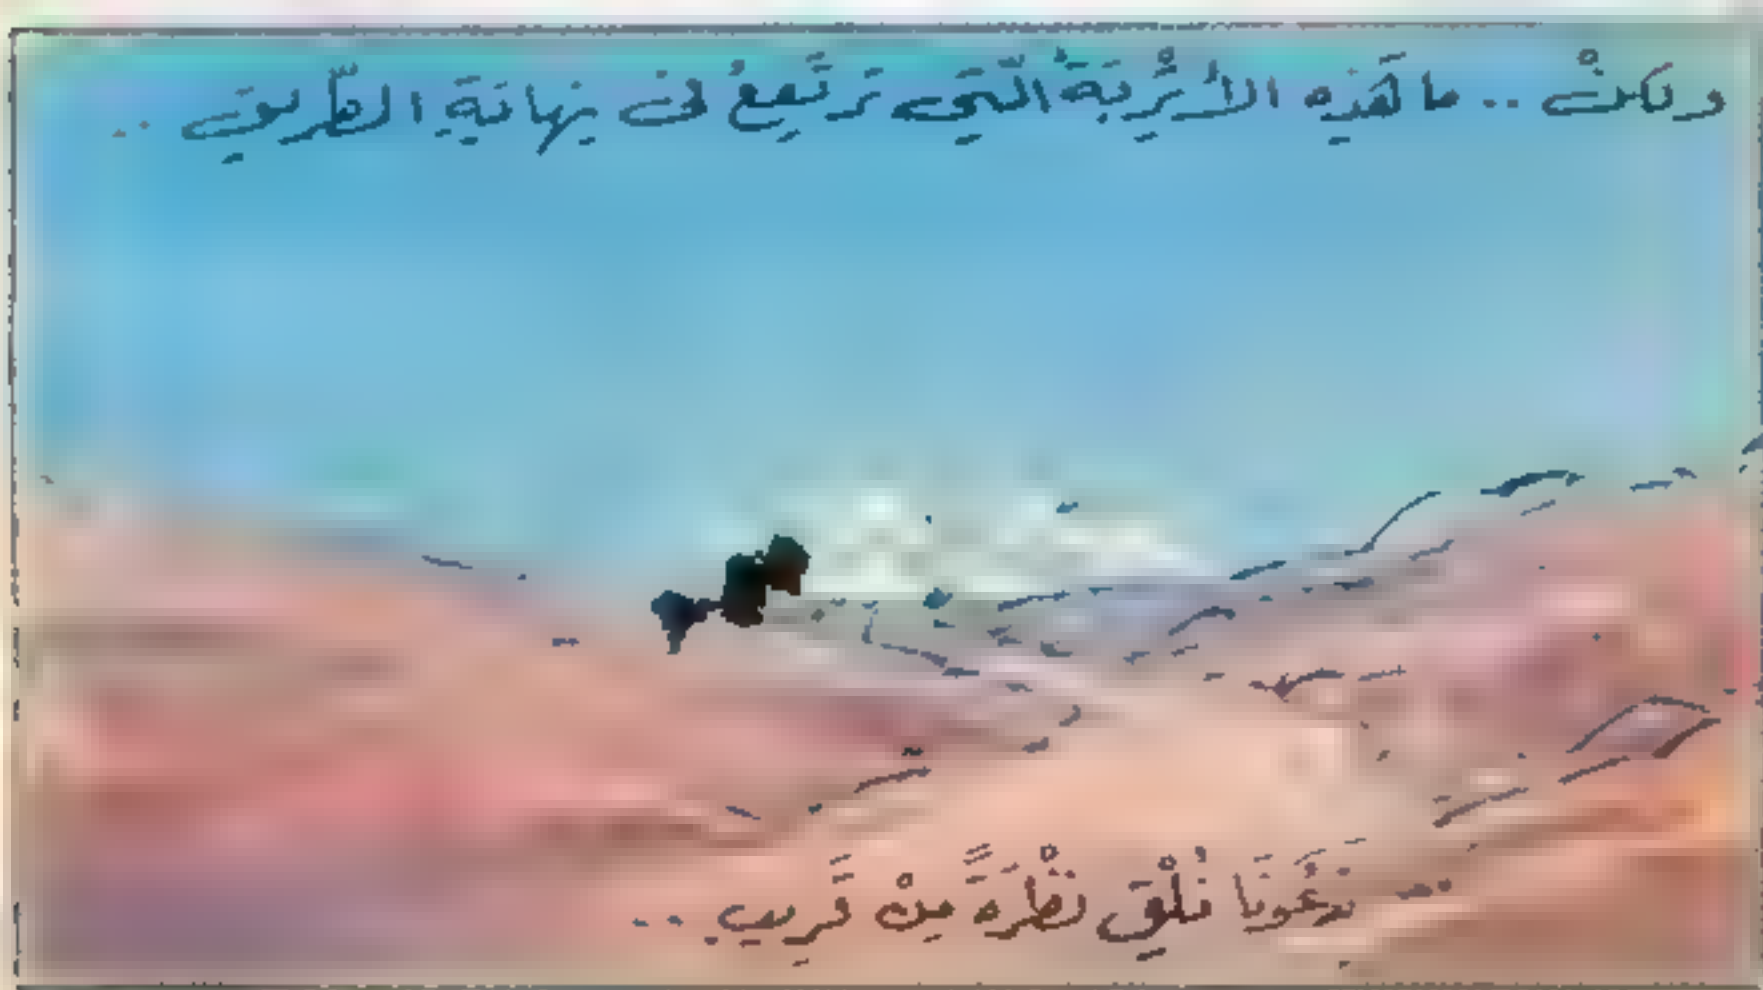 ولكنْ .. ما هَذِهِ الأتْرِبَةُ الَّتِي تَرْتَفِعُ فى نِهايَةِ الطَّرِيقِ ..
.. دَعُونَا نُلْقِ نَظْرَةً مِنْ قَرِيبٍ ..